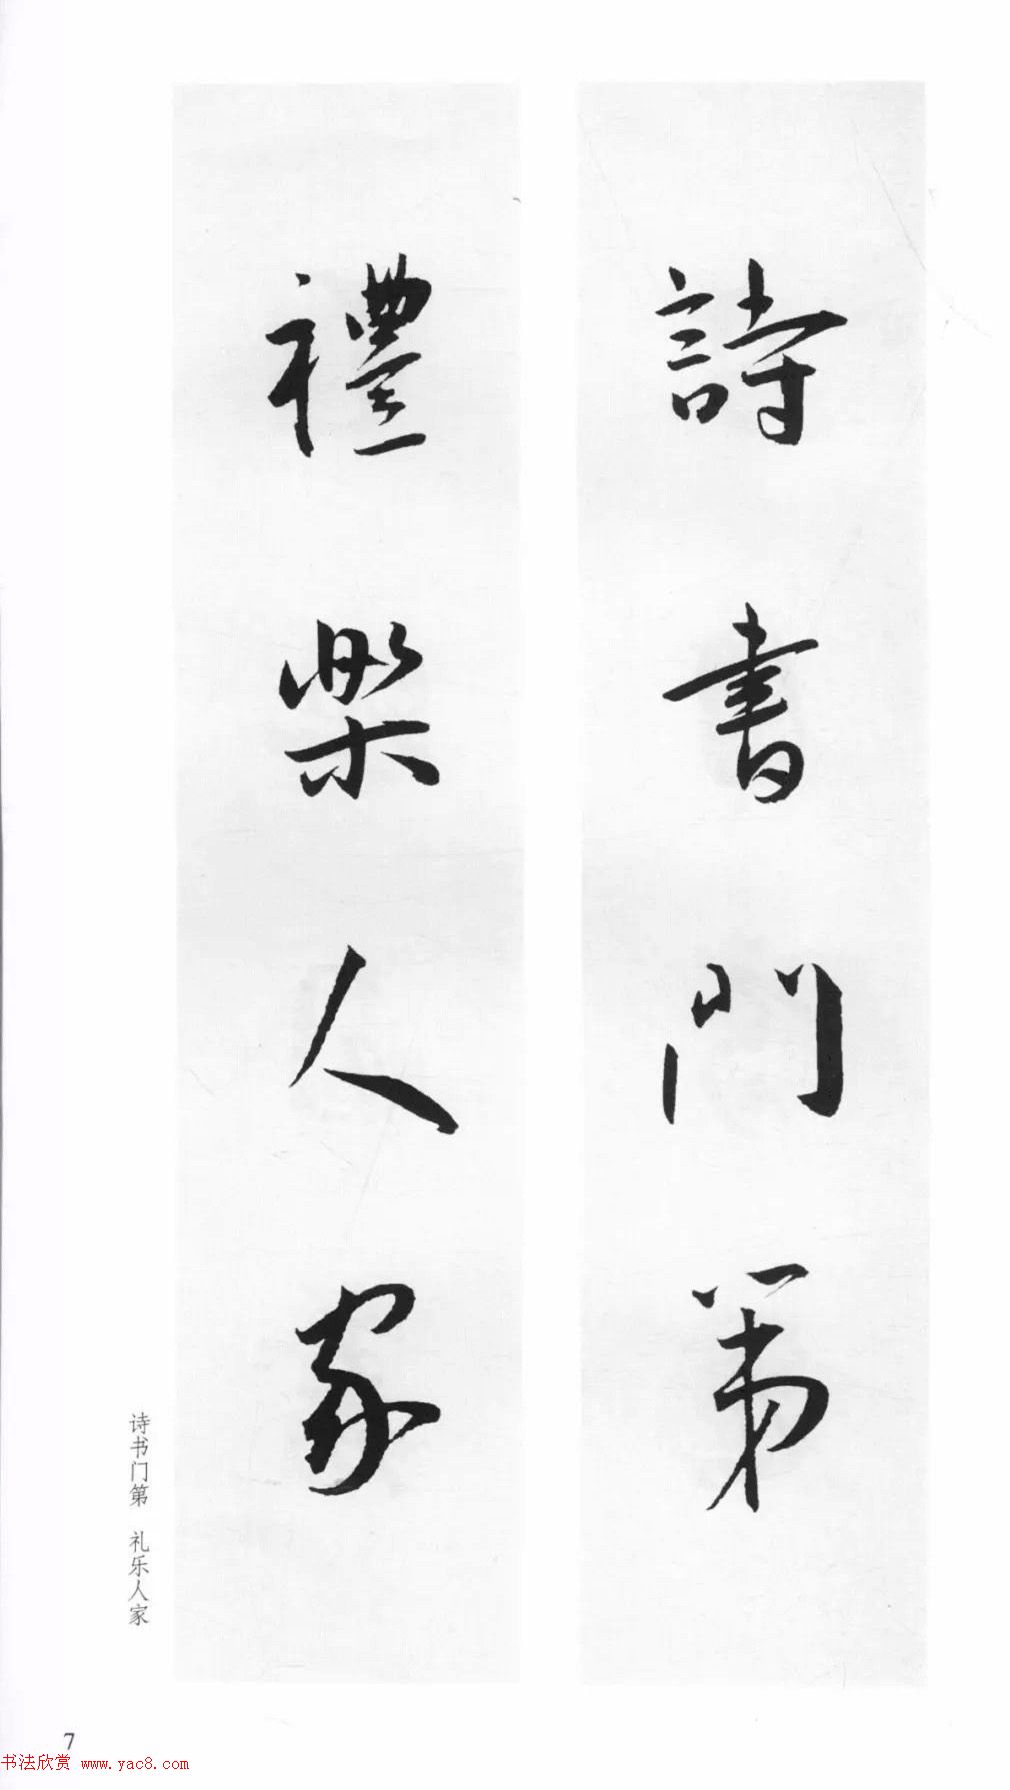 詩書門第
禮樂人家
诗书门第 礼乐人家
7
书法欣赏 www.yac8.com